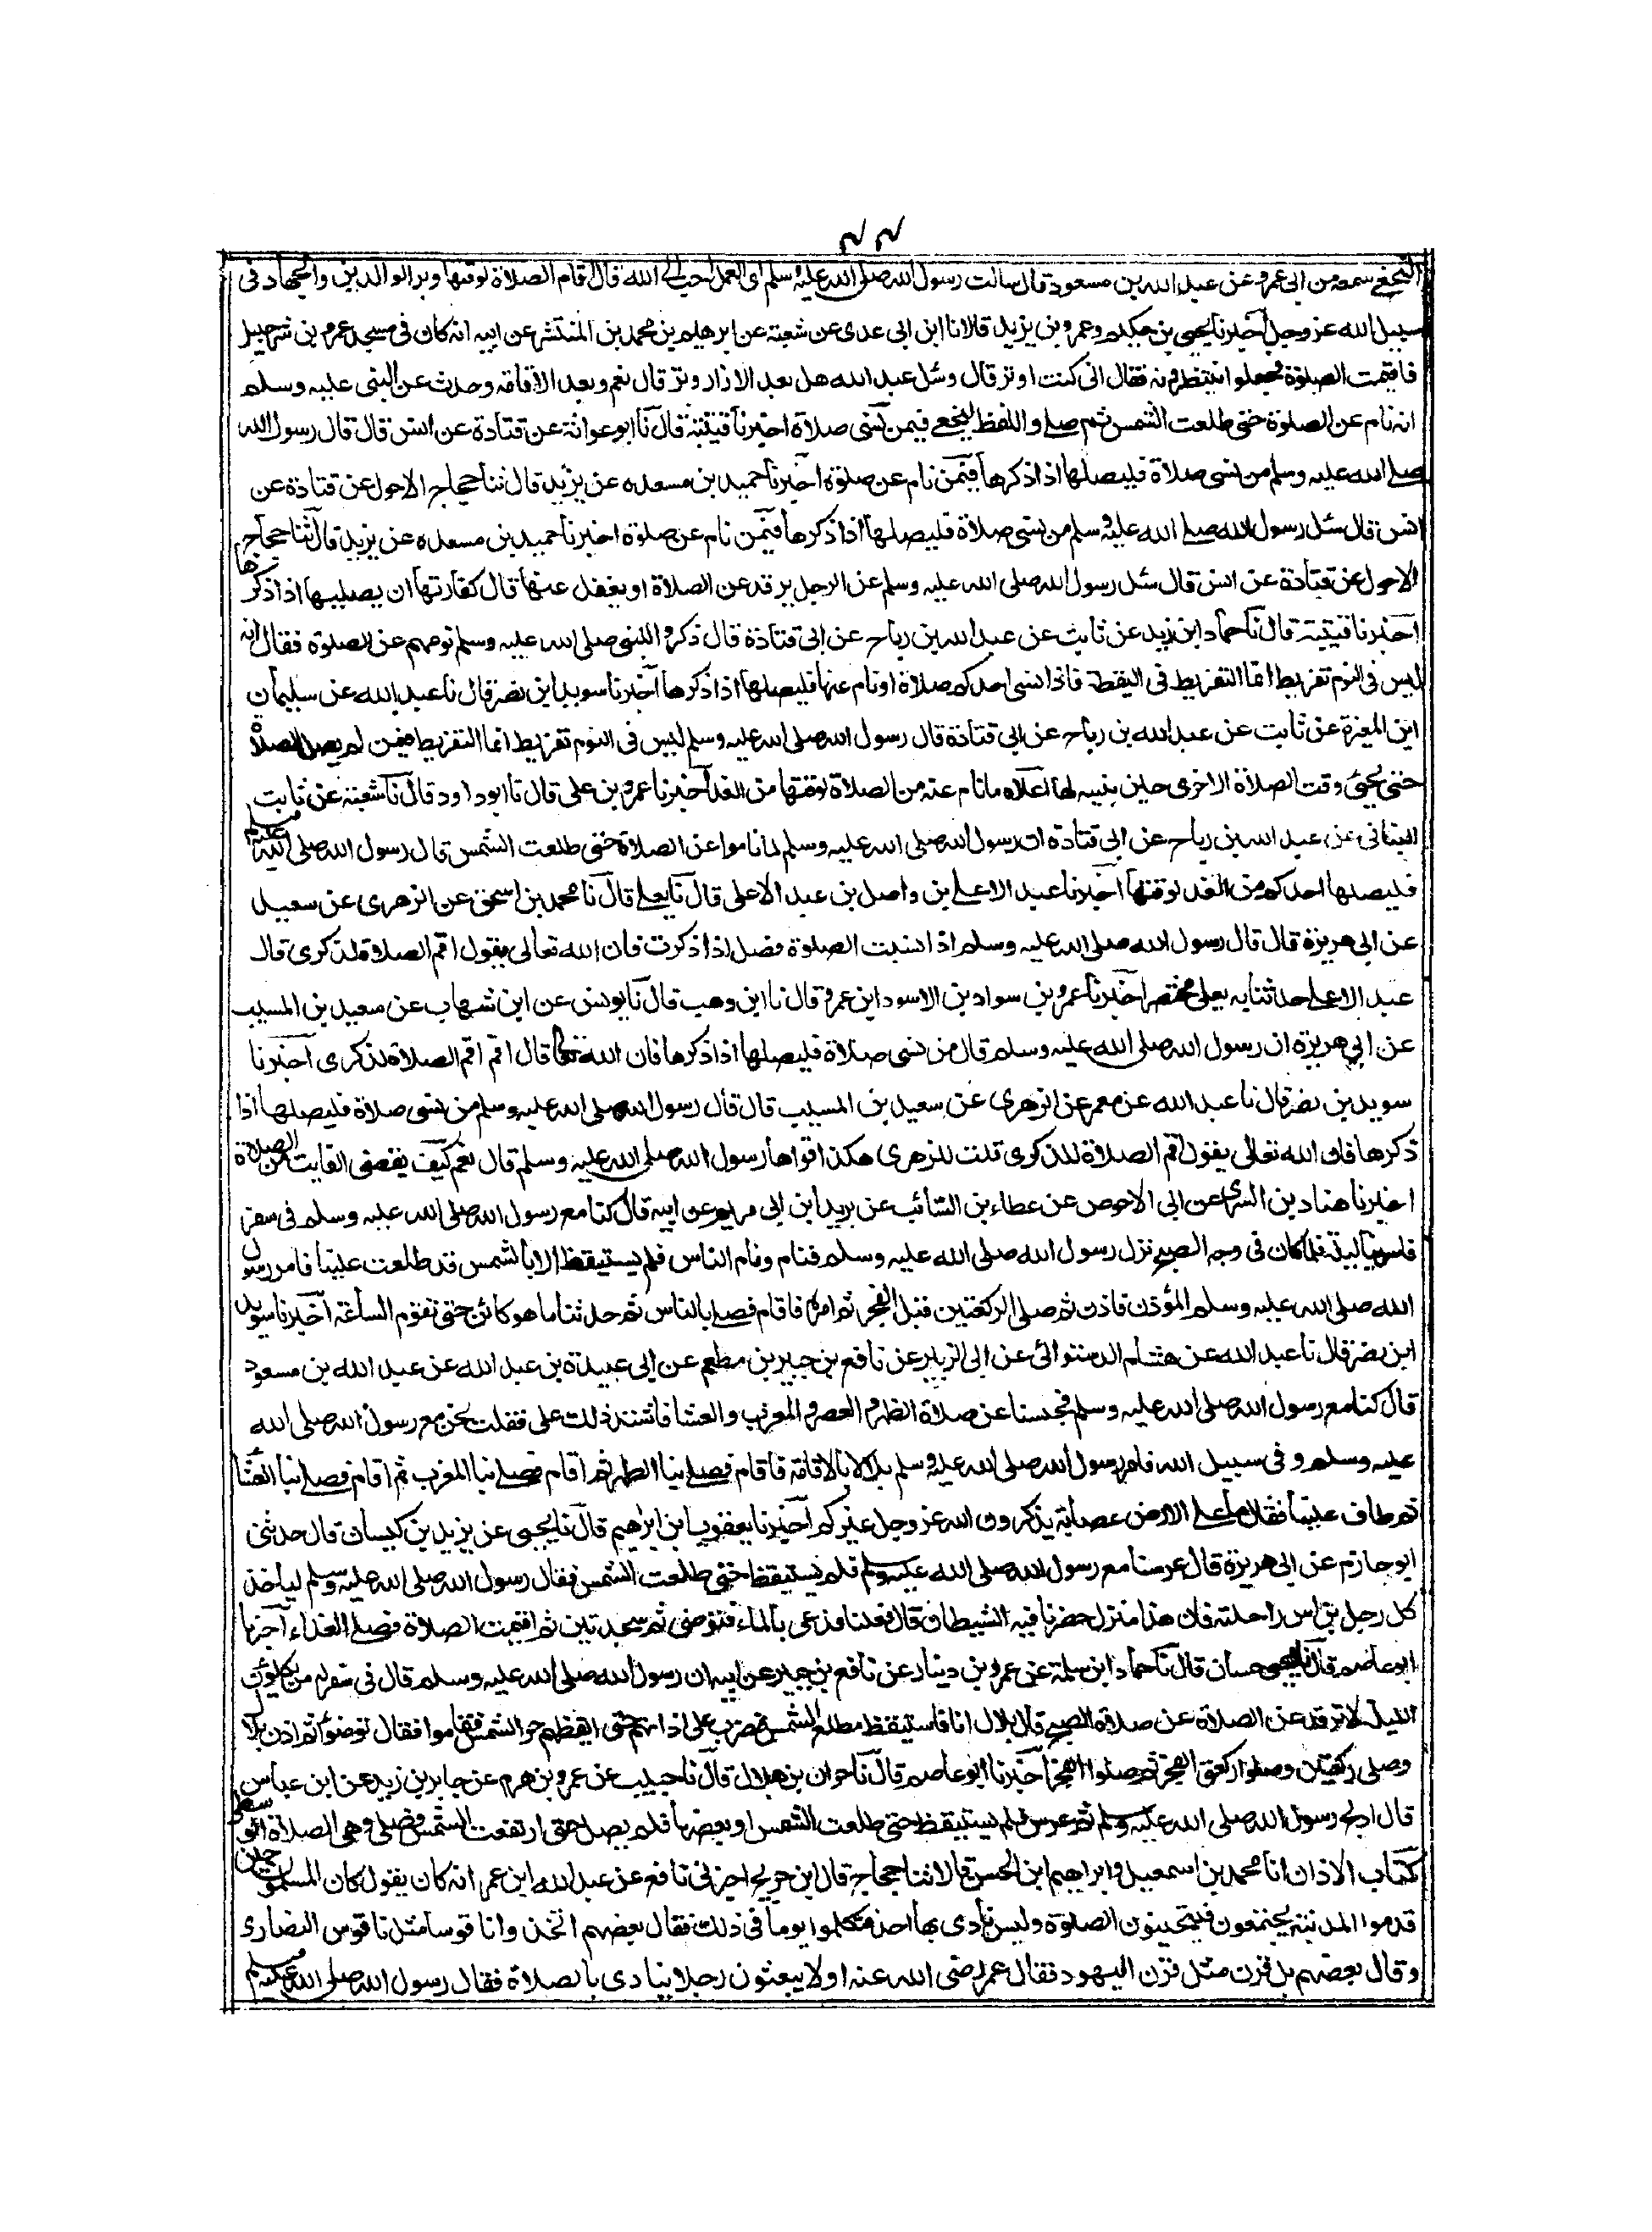 ٧٧
النخعي سمعه من ابي عمرو عن عبد الله بن مسعود قال سالت رسول الله صلى الله عليه وسلم اي العمل احب الى الله قال اقام الصلاة لوقتها وبر الوالدين والجهاد في
سبيل الله عز وجل اخبرنا يحيى بن حكيم وعمرو بن يزيد قالا نا ابن ابي عدي عن شعبة عن ابرهيم بن محمد بن المنتشر عن ابيه انه كان في مسجد عمرو بن شرحبيل
فاقيمت الصلوة فجعلوا ينتظرونه فقال اني كنت اوتر قال وسُئل عبد الله هل بعد الاذان وتر قال نعم وبعد الاقامة وحدث عن النبي عليه وسلم
انه نام عن الصلوة حتى طلعت الشمس ثم صلى واللفظ ليحيى فيمن نسي صلاة اخبرنا قتيبة قال نا ابو عوانة عن قتادة عن انس قال قال رسول الله
صلى الله عليه وسلم من نسي صلاة فليصلها اذا ذكرها فيمن نام عن صلوة اخبرنا حميد بن مسعده عن يزيد قال ثنا حجاج الاحول عن قتادة عن
انس قال سئل رسول الله صلى الله عليه وسلم من نسي صلاة فليصلها اذا ذكرها فيمن نام عن صلوة اخبرنا حميد بن مسعده عن يزيد قال ثنا حجاج
الاحول عن قتادة عن انس قال سئل رسول الله صلى الله عليه وسلم عن الرجل يرقد عن الصلاة او يغفل عنها قال كفارتها ان يصليها اذا ذكرها
اخبرنا قتيبة قال نا حماد ابن زيد عن ثابت عن عبد الله بن رباح عن ابي قتادة قال ذكروا للنبي صلى الله عليه وسلم نومهم عن الصلوة فقال انه
ليس في النوم تفريط انما التفريط في اليقظة فاذا نسي احدكم صلاة او نام عنها فليصلها اذا ذكرها اخبرنا سويد ابن نضر قال نا عبد الله عن سليمان
ابن المغيرة عن ثابت عن عبد الله بن رباح عن ابي قتادة قال رسول الله صلى الله عليه وسلم ليس في النوم تفريط انما التفريط فيمن لم يصل الصلاة
حتى يجيئ وقت الصلاة الاخرى حين ينبيه لها اعلاه ما نام عنه من الصلاة لوقتها من الغد اخبرنا عمرو بن علي قال نا ابو داود قال نا شعبة عن ثابت
البناني عن عبد الله بن رباح عن ابي قتادة ان رسول الله صلى الله عليه وسلم لما ناموا عن الصلاة حتى طلعت الشمس قال رسول الله صلى الله عليه وسلم
فليصلها احدكم من الغد لوقتها اخبرنا عبد الاعلى بن واصل بن عبد الاعلى قال نا يعلى قال نا محمد بن اسحق عن الزهري عن سعيد
عن ابي هريرة قال قال رسول الله صلى الله عليه وسلم اذا نسيت الصلوة فصل اذا ذكرت فان الله تعالى يقول اقم الصلاة لذكري قال
عبد الاعلى حدثنا به يعلى مختصر اخبرنا عمرو بن سواد بن الاسود ابن عمرو قال نا ابن وهب قال نا يونس عن ابن شهاب عن سعيد بن المسيب
عن ابي هريرة ان رسول الله صلى الله عليه وسلم قال من نسي صلاة فليصلها اذا ذكرها فان الله تعالى قال اقم اقم الصلاة لذكري اخبرنا
سويد بن نضر قال نا عبد الله عن معمر عن الزهري عن سعيد بن المسيب قال قال رسول الله صلى الله عليه وسلم من نسي صلاة فليصلها اذا
ذكرها فان الله تعالى يقول اقم الصلاة للذكرى قلت للزهري هكذا قراها رسول الله صلى الله عليه وسلم قال نعم كيف يقضى الفايت من الصلاة
اخبرنا هناد بن السري عن ابي الاحوص عن عطاء بن السائب عن بريد ابن ابي مريم عن ابيه قال كنا مع رسول الله صلى الله عليه وسلم في سفر
فاسرينا ليلة فلما كان في وجه الصبح نزل رسول الله صلى الله عليه وسلم فنام ونام الناس فلم يستيقظ الا بالشمس قد طلعت علينا فامر رسول
الله صلى الله عليه وسلم المؤذن فاذن ثم صلى الركعتين قبل الفجر ثم امره فاقام فصلى بالناس ثم حدثنا ما هو كائن حتى تقوم الساعة اخبرنا سويد
ابن نضر قال نا عبد الله عن هشام الدستوائي عن ابي الزبير عن نافع بن جبير بن مطعم عن ابي عبيدة بن عبد الله عن عبد الله بن مسعود
قال كنا مع رسول الله صلى الله عليه وسلم فحبسنا عن صلاة الظهر والعصر والمغرب والعشا فاشتد ذلك علي فقلت نحن مع رسول الله صلى الله
عليه وسلم وفي سبيل الله فامر رسول الله صلى الله عليه وسلم بلالا بالاقامة فاقام فصلى بنا الظهر ثم اقام فصلى بنا المغرب ثم اقام فصلى بنا العشا
ثم طاف علينا فقال ما على الارض عصابة يذكرون الله عز وجل غيركم اخبرنا يعقوب ابن ابراهيم قال نا يحيى عن يزيد بن كيسان قال حدثني
ابو حازم عن ابي هريرة قال عرسنا مع رسول الله صلى الله عليه وسلم فلم نستيقظ حتى طلعت الشمس فقال رسول الله صلى الله عليه وسلم ليأخذ
كل رجل براس راحلته فان هذا منزل حضرنا فيه الشيطان قال فعلنا فدعى بالماء فتوضى ثم سجدتين ثم اقيمت الصلاة فصلى الغداء اخبرنا
ابو عاصم قال نا يحيى حسان قال نا حماد ابن سلمة عن عمرو بن دينار عن نافع بن جبير عن ابيه ان رسول الله صلى الله عليه وسلم قال في سفر له من يكلؤنا
الليل لا نرقد عن الصلاة عن صلاة الصبح قال بلال انا فاستيقظ مطلع الشمس فضرب على اذانهم حتى ايقظهم حر الشمس فقاموا فقال توضؤا ثم اذن بلال
وصلى ركعتين وصلوا ركعتي الفجر ثم صلوا الفجر اخبرنا ابو عاصم قال نا حبان بن هلال قال نا حبيب عن عمرو بن هرم عن جابر بن زيد عن ابن عباس
قال ادلج رسول الله صلى الله عليه وسلم ثم عرس فلم يستيقظ حتى طلعت الشمس او بعضها فلم يصل حتى ارتفعت الشمس فصلى وهي الصلاة الوسطى
كتاب الاذان انا محمد بن اسمعيل وابراهيم ابن الحسن قالا ثنا حجاج قال ابن جريج اخبرني نافع عن عبد الله ابن عمر انه كان يقول كان المسلمون حين
قدموا المدينة يجتمعون فيتحينون الصلوة وليس ينادي بها احد فتكلموا يوما في ذلك فقال بعضهم اتخذوا ناقوسا مثل ناقوس النصارى
وقال بعضهم بل قرن مثل قرن اليهود فقال عمر رضى الله عنه اولا يبعثون رجلا ينادى بالصلاة فقال رسول الله صلى الله عليه وسلم